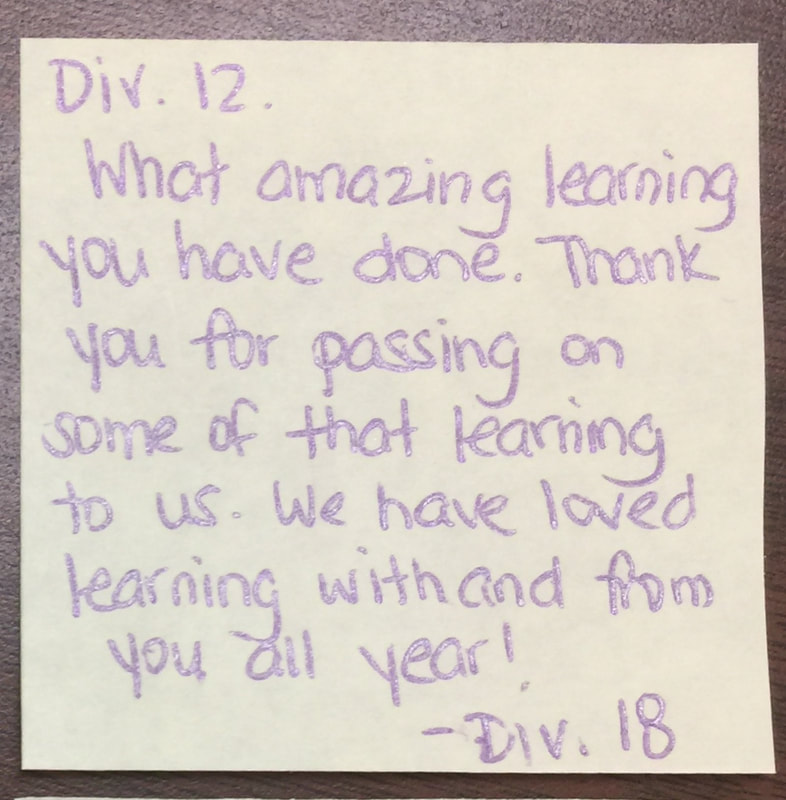 Div. 12.
What amazing learning
you have done. Thank
you for passing on
some of that learning
to us. We have loved
learning with and from
you all year!
-Div. 18